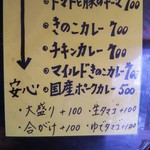 ・トマトと豚のキーマ 700
・きのこカレー 700
・チキンカレー 700
・マイルドきのこカレー 700
安心・国産ポークカレー 500
・大盛り +100 ・生タマゴ +100
・合がけ +100 ・ゆでタマゴ +100